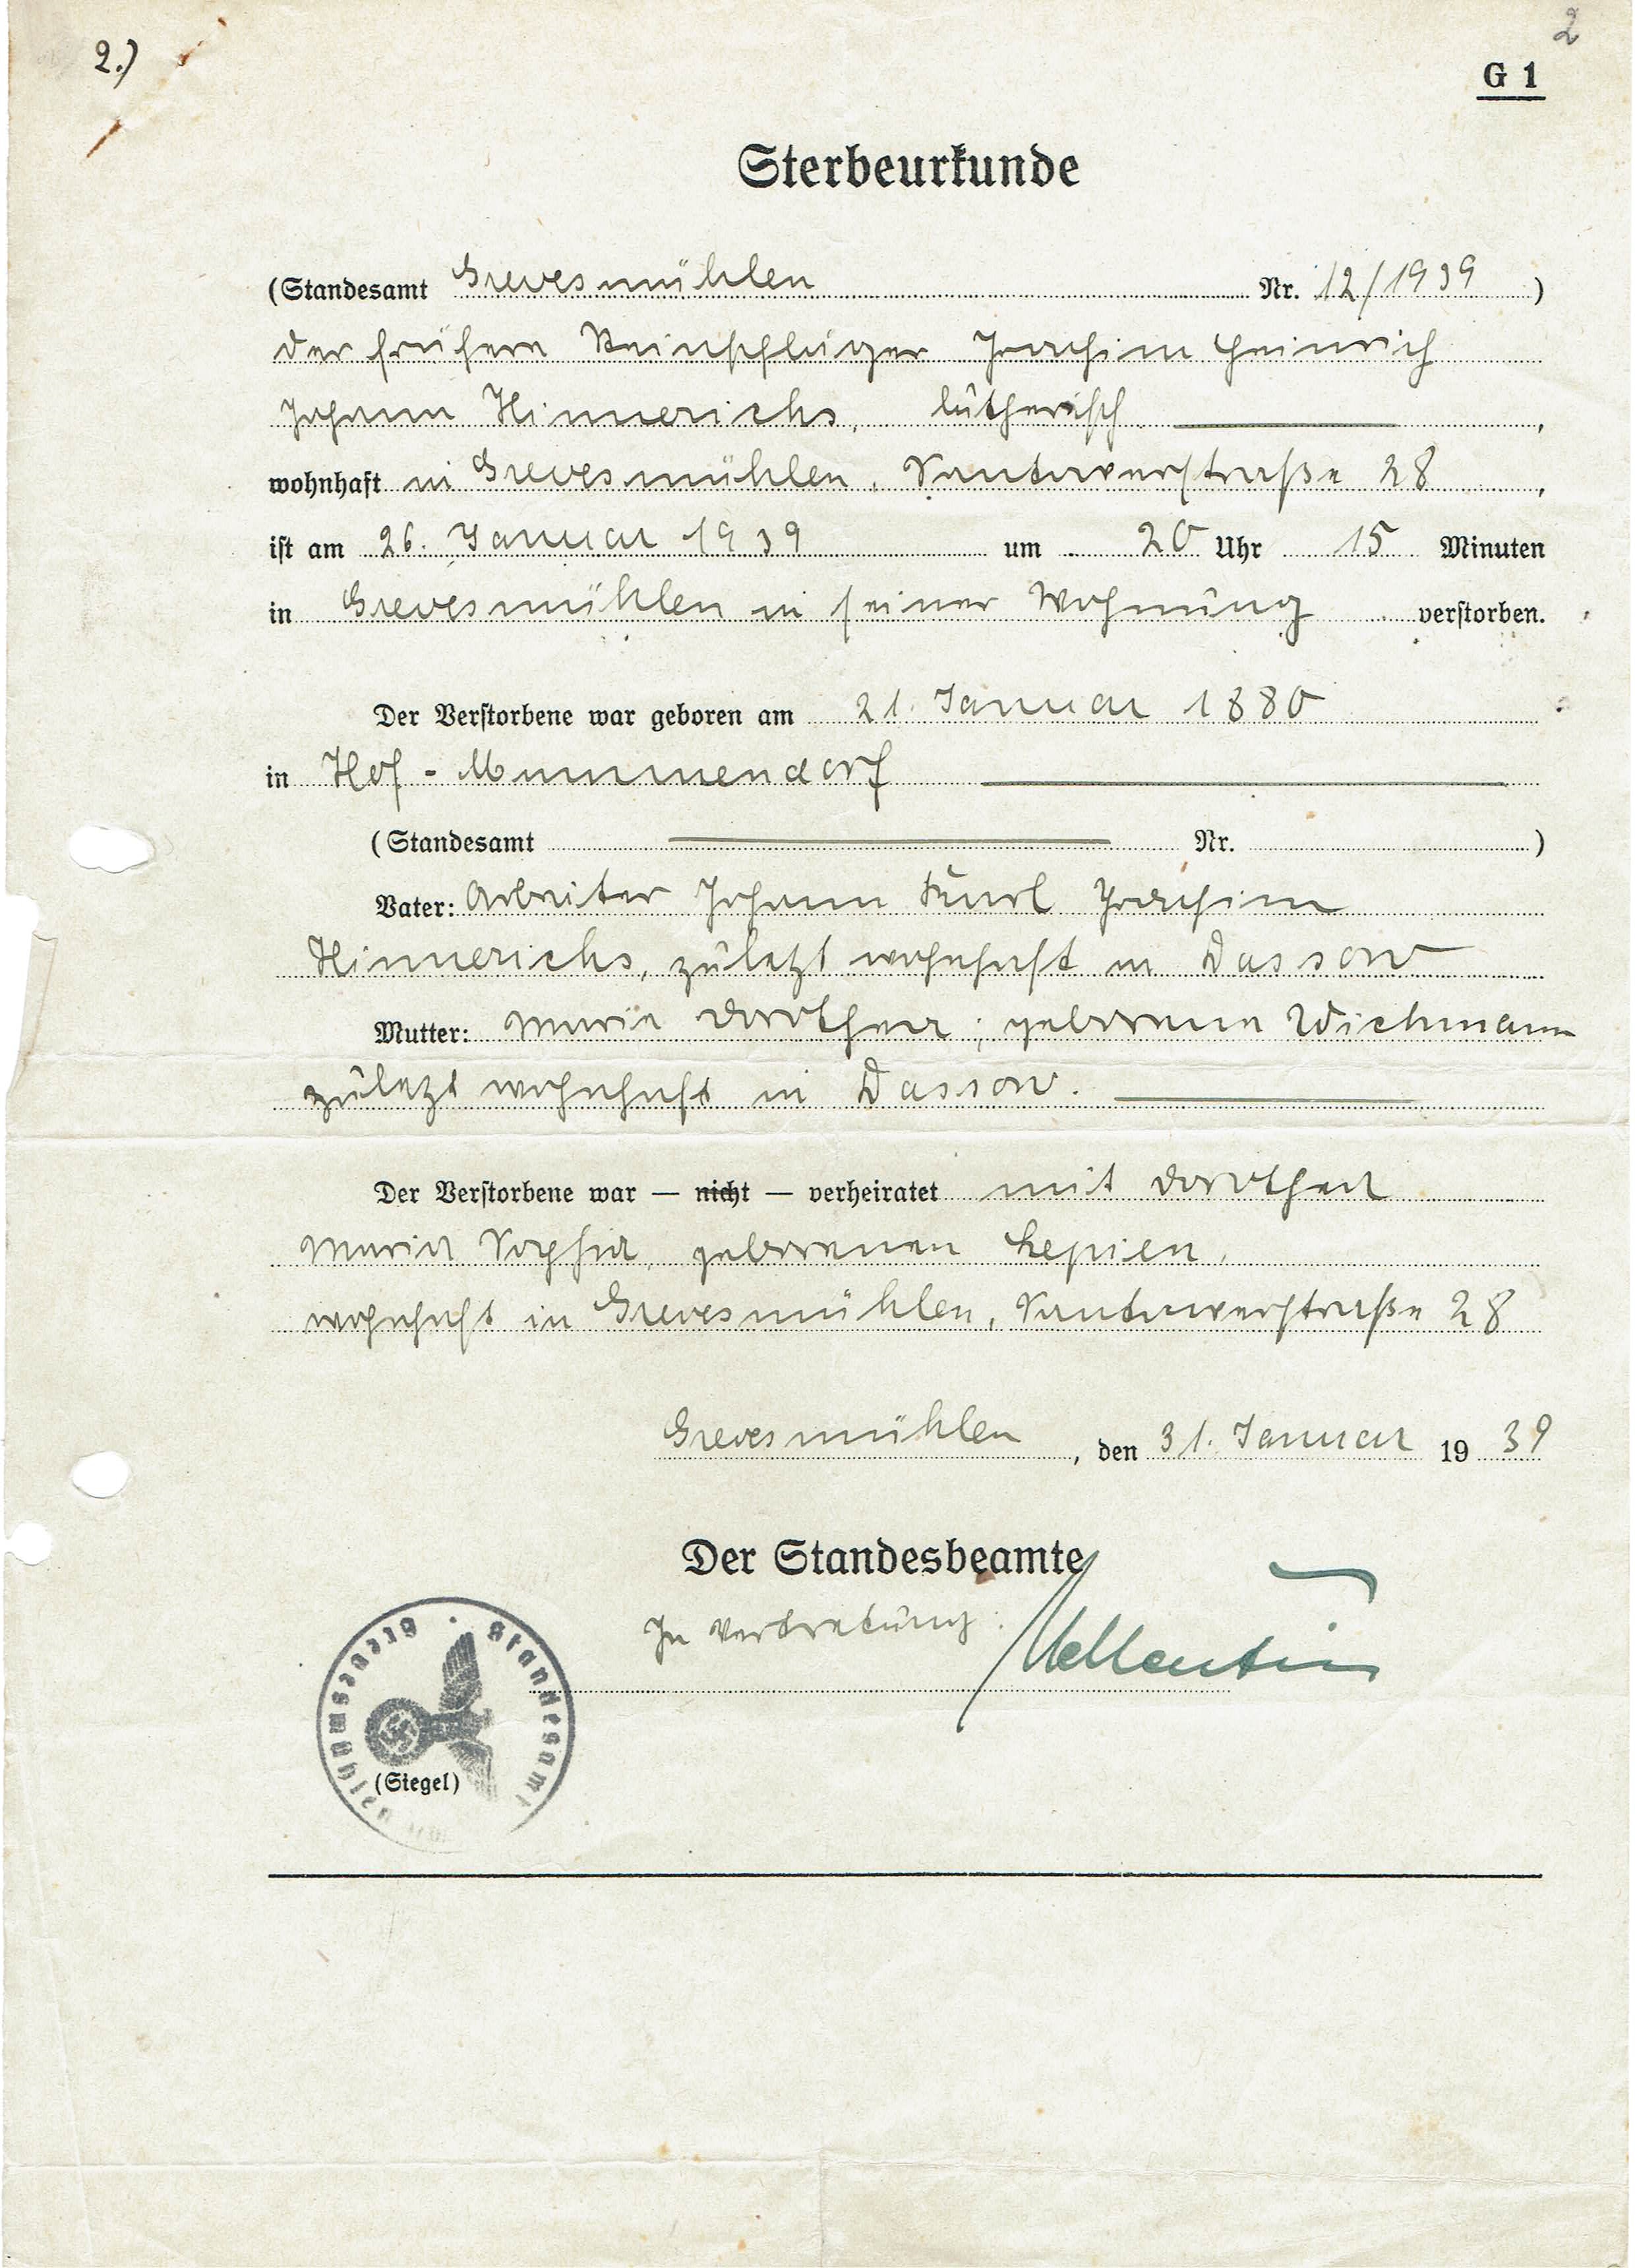 2.)
2
G 1
Sterbeurkunde
(Standesamt Grevesmühlen Nr. 12/1939)
Der frühere Steinschläger Joachim Heinrich
Johann Hinnerichs, lutherisch,
wohnhaft in Grevesmühlen, Santowerstraße 28,
ist am 26. Januar 1939 um 20 Uhr 15 Minuten
in Grevesmühlen in seiner Wohnung verstorben.
Der Verstorbene war geboren am 21. Januar 1880
in Hof - Mummendorf
(Standesamt Nr. )
Vater: Arbeiter Johann Karl Joachim
Hinnerichs, zuletzt wohnhaft in Dassow
Mutter: Maria Dorothea, geborene Wichmann
zuletzt wohnhaft in Dassow.
Der Verstorbene war — nicht — verheiratet mit Dorothea
Maria Sophia, geborenen Lepien,
wohnhaft in Grevesmühlen, Santowerstraße 28
Grevesmühlen, den 31. Januar 1939
Der Standesbeamte
In Vertretung:
Standesamt Grevesmühlen
(Siegel)